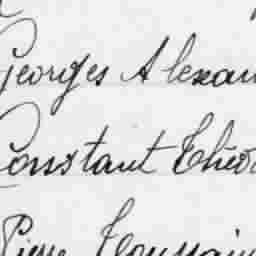 Georges Alexan
Constant Théo
Pierre Toussain